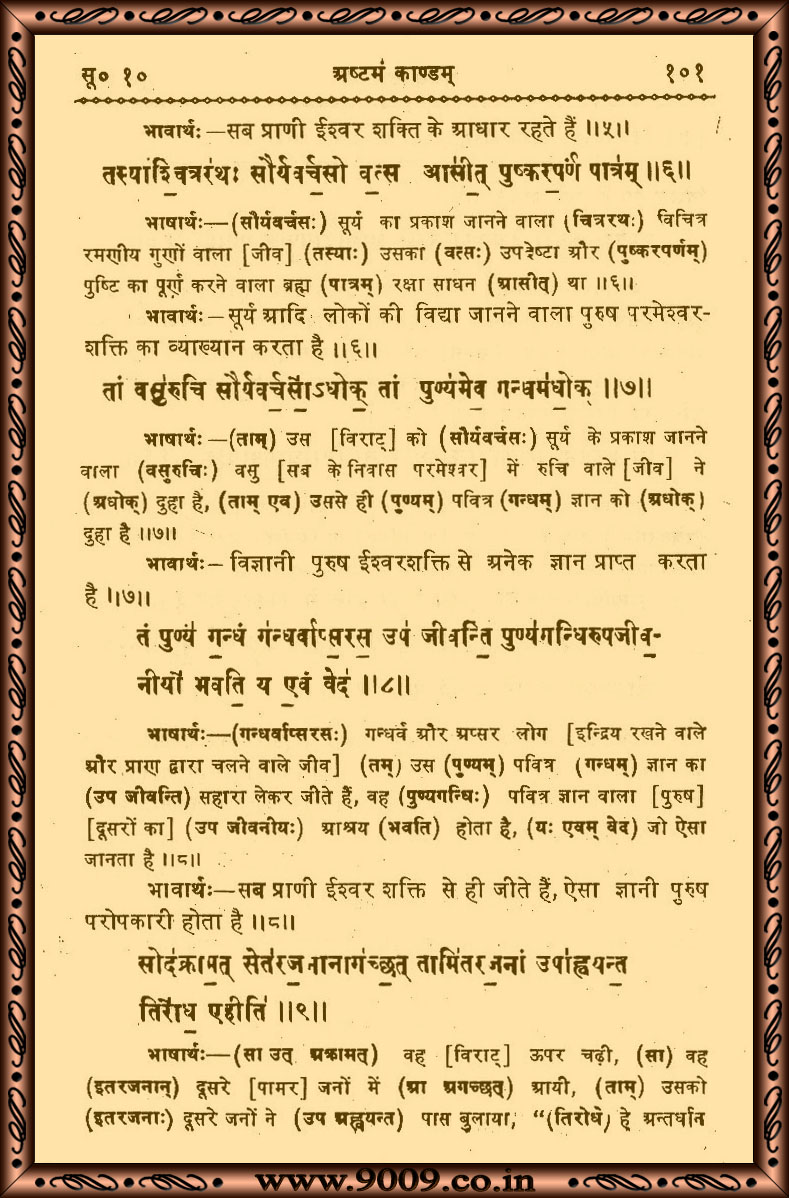 सू० १० अष्टमं काण्डम् १०१
भावार्थः—सब प्राणी ईश्वर शक्ति के आधार रहते हैं ॥५॥
तस्या॑श्चि॒त्रर॑थः सौर्यवर्च॒सो व॒त्स आसी॑त् पुष्करप॒र्णं पात्र॑म् ॥६॥
भाषार्थः—(सौर्यवर्चसः) सूर्य का प्रकाश जानने वाला (चित्ररथः) विचित्र
रमणीय गुणों वाला [जीव] (तस्याः) उसका (वत्सः) उपदेष्टा और (पुष्करपर्णम्)
पुष्टि का पूर्ण करने वाला ब्रह्म (पात्रम्) रक्षा साधन (आसीत्) था ॥६॥
भावार्थः—सूर्य आदि लोकों की विद्या जानने वाला पुरुष परमेश्वर-
शक्ति का व्याख्यान करता है ॥६॥
तां वसु॑रुचि सौर्यवर्च॒सो॑ऽधो॒क् तां पुण्य॑मे॒व ग॒न्धम॑धोक् ॥७॥
भाषार्थः—(ताम्) उस [विराट्] को (सौर्यवर्चसः) सूर्य के प्रकाश जानने
वाला (वसुरुचिः) वसु [सब के निवास परमेश्वर] में रुचि वाले [जीव] ने
(अधोक्) दुहा है, (ताम् एव) उससे ही (पुण्यम्) पवित्र (गन्धम्) ज्ञान को (अधोक्)
दुहा है ॥७॥
भावार्थः—विज्ञानी पुरुष ईश्वरशक्ति से अनेक ज्ञान प्राप्त करता
है ॥७॥
तं पुण्यं॑ ग॒न्धं ग॑न्धर्वाप्स॒रस॒ उप॑ जीवन्ति॒ पुण्य॑गन्धिरुपजीव॒-
नीयो॑ भवति॒ य ए॒वं वेद॑ ॥८॥
भाषार्थः—(गन्धर्वाप्सरसः) गन्धर्व और अप्सर लोग [इन्द्रिय रखने वाले
और प्राण द्वारा चलने वाले जीव] (तम्) उस (पुण्यम्) पवित्र (गन्धम्) ज्ञान का
(उप जीवन्ति) सहारा लेकर जीते हैं, वह (पुण्यगन्धिः) पवित्र ज्ञान वाला [पुरुष]
[दूसरों का] (उप जीवनीयः) आश्रय (भवति) होता है, (यः एवम् वेद) जो ऐसा
जानता है ॥८॥
भावार्थः—सब प्राणी ईश्वर शक्ति से ही जीते हैं, ऐसा ज्ञानी पुरुष
परोपकारी होता है ॥८॥
सोद॑क्राम॒त् सेत॑रज॒नानाग॑च्छ॒त् तामि॑तरज॒नां उपा॑ह्वयन्त॒
तिरो॑ध॒ एहीति॑ ॥९॥
भाषार्थः—(सा उत् अक्रामत्) वह [विराट्] ऊपर चढ़ी, (सा) वह
(इतरजनान्) दूसरे [पामर] जनों में (आ अगच्छत्) आयी, (ताम्) उसको
(इतरजनाः) दूसरे जनों ने (उप अह्वयन्त) पास बुलाया, “(तिरोधे) हे अन्तर्धान
www.9009.co.in